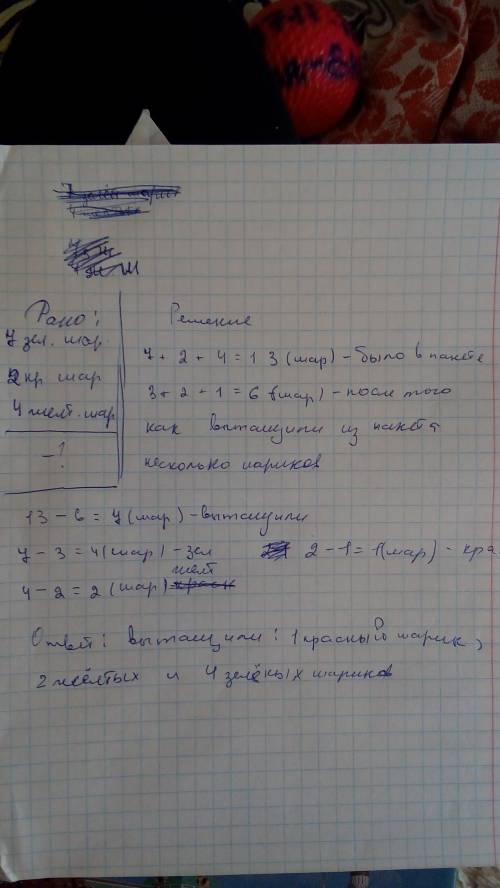 Дано:
7 зел. шар.
2 кр шар
4 желт. шар
- ?
Решение
7 + 2 + 4 = 13 (шар) - было в пакете
3 + 2 + 1 = 6 (шар) - после того
как вытащили из пакета
несколько шариков
13 - 6 = 7 (шар) - вытащили
7 - 3 = 4 (шар) - зел
2 - 1 = 1 (шар) - кра
4 - 2 = 2 (шар) желт
Ответ: вытащили: 1 красный шарик,
2 жёлтых и 4 зелёных шариков